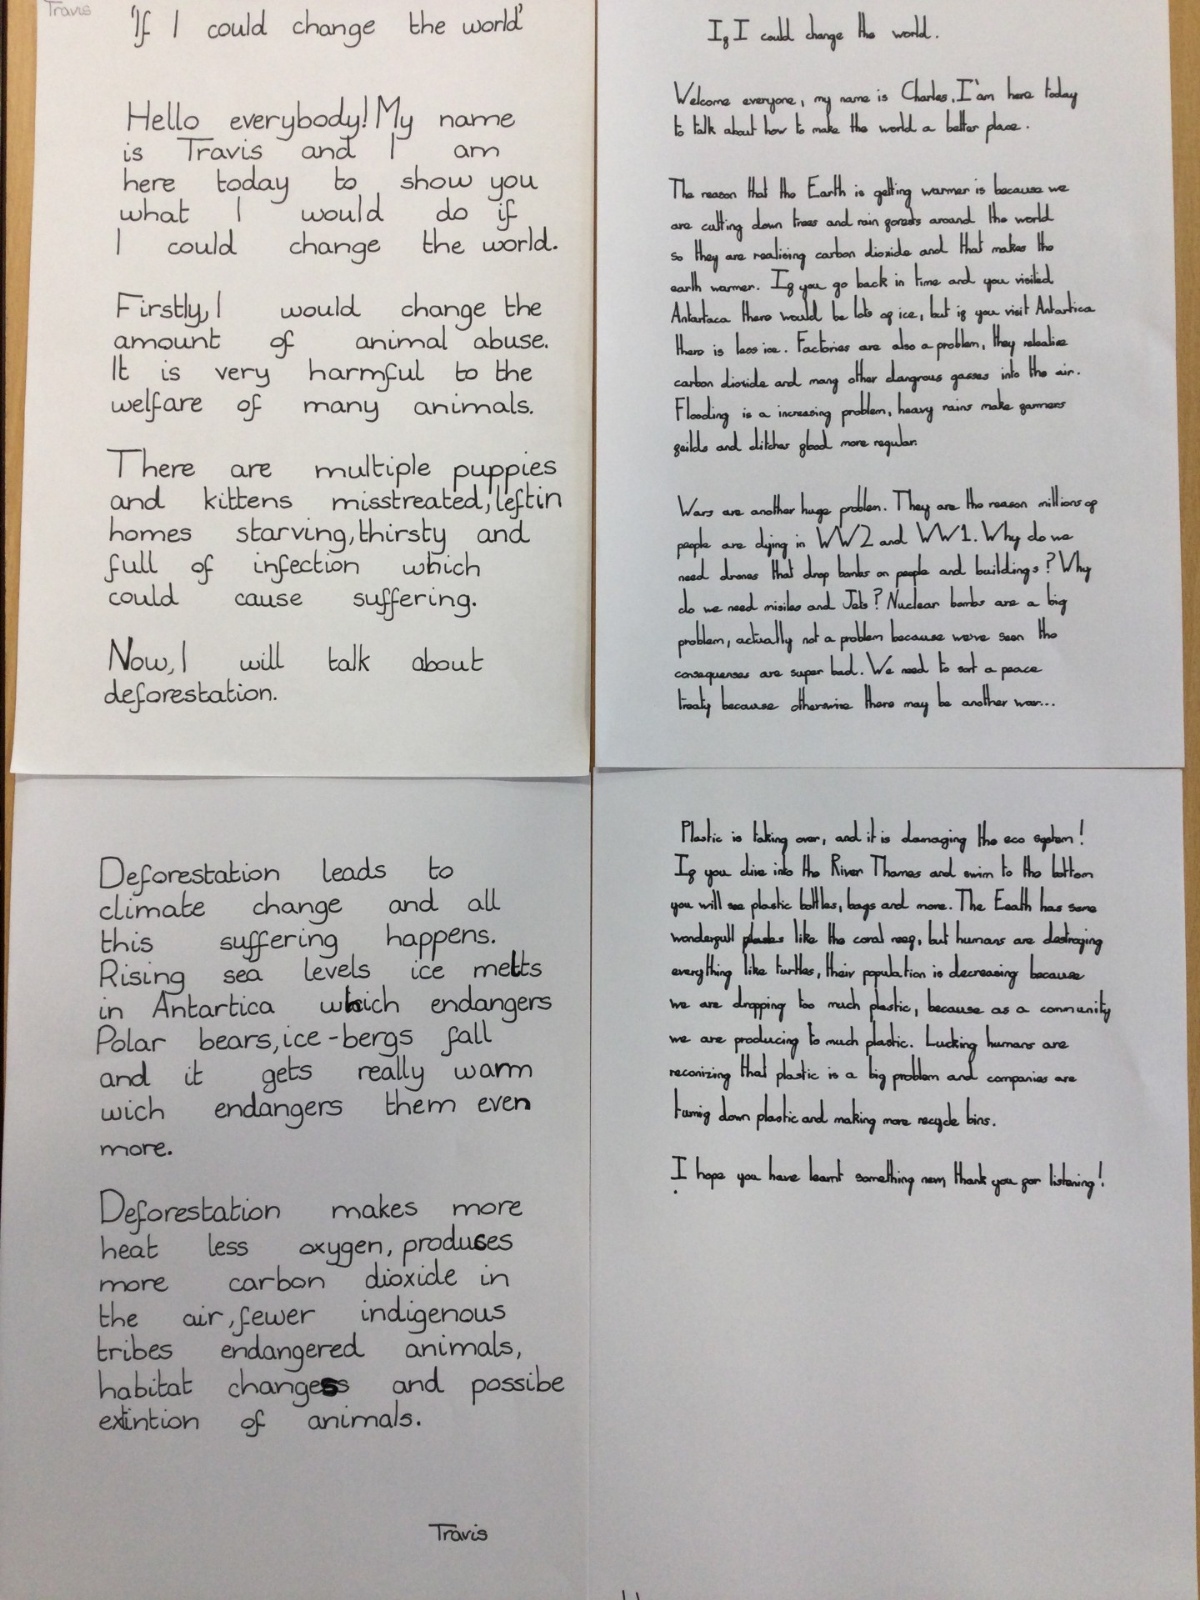 Travis
'If I could change the world'
Hello everybody! My name
is Travis and I am
here today to show you
what I would do if
I could change the world.
Firstly, I would change the
amount of animal abuse.
It is very harmful to the
welfare of many animals.
There are multiple puppies
and kittens misstreated, left in
homes starving, thirsty and
full of infection which
could cause suffering.
Now, I will talk about
deforestation.
Deforestation leads to
climate change and all
this suffering happens.
Rising sea levels ice melts
in Antartica which endangers
Polar bears, ice-bergs fall
and it gets really warm
wich endangers them even
more.
Deforestation makes more
heat less oxygen, produces
more carbon dioxide in
the air, fewer indigenous
tribes endangered animals,
habitat changes and possibe
extintion of animals.
Travis
If I could change the world.
Welcome everyone, my name is Charles, I'am here today
to talk about how to make the world a better place.
The reason that the Earth is getting warmer is because we
are cutting down trees and rain forests around the world
so they are realising carbon dioxide and that makes the
earth warmer. If you go back in time and you visited
Antartaca there would be lots of ice, but if you visit Antartica
there is less ice. Factories are also a problem, they realise
carbon dioxide and many other dangrous gasses into the air.
Flooding is a increasing problem, heavy rains make farmers
feilds and ditches flood more regular.
Wars are another huge problem. They are the reason millions of
people are dying in WW2 and WW1. Why do we
need drones that drop bombs on people and buildings? Why
do we need misiles and Jets? Nuclear bombs are a big
problem, actually not a problem because we've seen the
consequenses are super bad. We need to sort a peace
treaty because otherwise there may be another war...
Plastic is taking over, and it is damaging the eco system!
If you dive into the River Thames and swim to the bottom
you will see plastic bottles, bags and more. The Eeath has some
wonderfull places like the coral reef, but humans are destroying
everything like turtles, their population is decreasing because
we are dropping too much plastic, because as a community
we are producing to much plastic. Lucking humans are
reconizing that plastic is a big problem and companies are
turnig down plastic and making more recycle bins.
I hope you have learnt something new, thank you for listening!